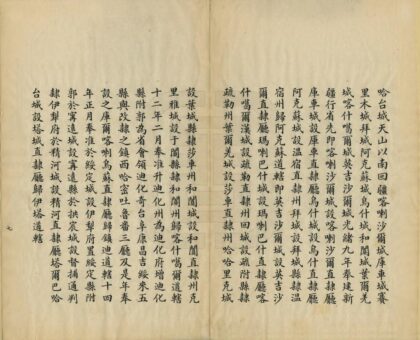 哈台城天山以南回疆喀喇沙爾城庫車城賽
里木城拜城阿克蘇城烏什城和闐城葉爾羌
城喀什噶爾城英吉沙爾城光緒九年奉建新
疆行省先即喀喇沙爾城設喀喇沙爾直隸廳
庫車城設庫車直隸廳烏什城設烏什直隸廳
阿克蘇城設溫宿直隸州拜城設拜城縣隸溫
宿州歸阿克蘇道轄即英吉沙爾城設英吉沙
爾直隸廳瑪喇巴什城設瑪喇巴什直隸廳喀
什噶爾漢城設疏勒直隸州回城設疏附縣隸
疏勒州葉爾羌城設莎車直隸州哈哈里克城
設葉城縣隸莎車州和闐城設和闐直隸州克
里雅城設于闐縣隸和闐州歸喀什噶爾道轄
十二年二月奏准升迪化州為迪化府增迪化
縣附郭為省會領迪化奇台阜康昌吉綏來五
縣與改隸之鎮西哈密吐魯番三廳及是年奉
設之庫爾喀喇烏蘇直隸廳歸鎮迪道轄十四
年正月奏准於綏定城設伊犁府置綏定縣附
郭於寧遠城設寧遠縣於拱宸城設督捕通判
隸伊犁府於精河城設精河直隸廳塔爾巴哈
台城設塔城直隸廳歸伊塔道轄